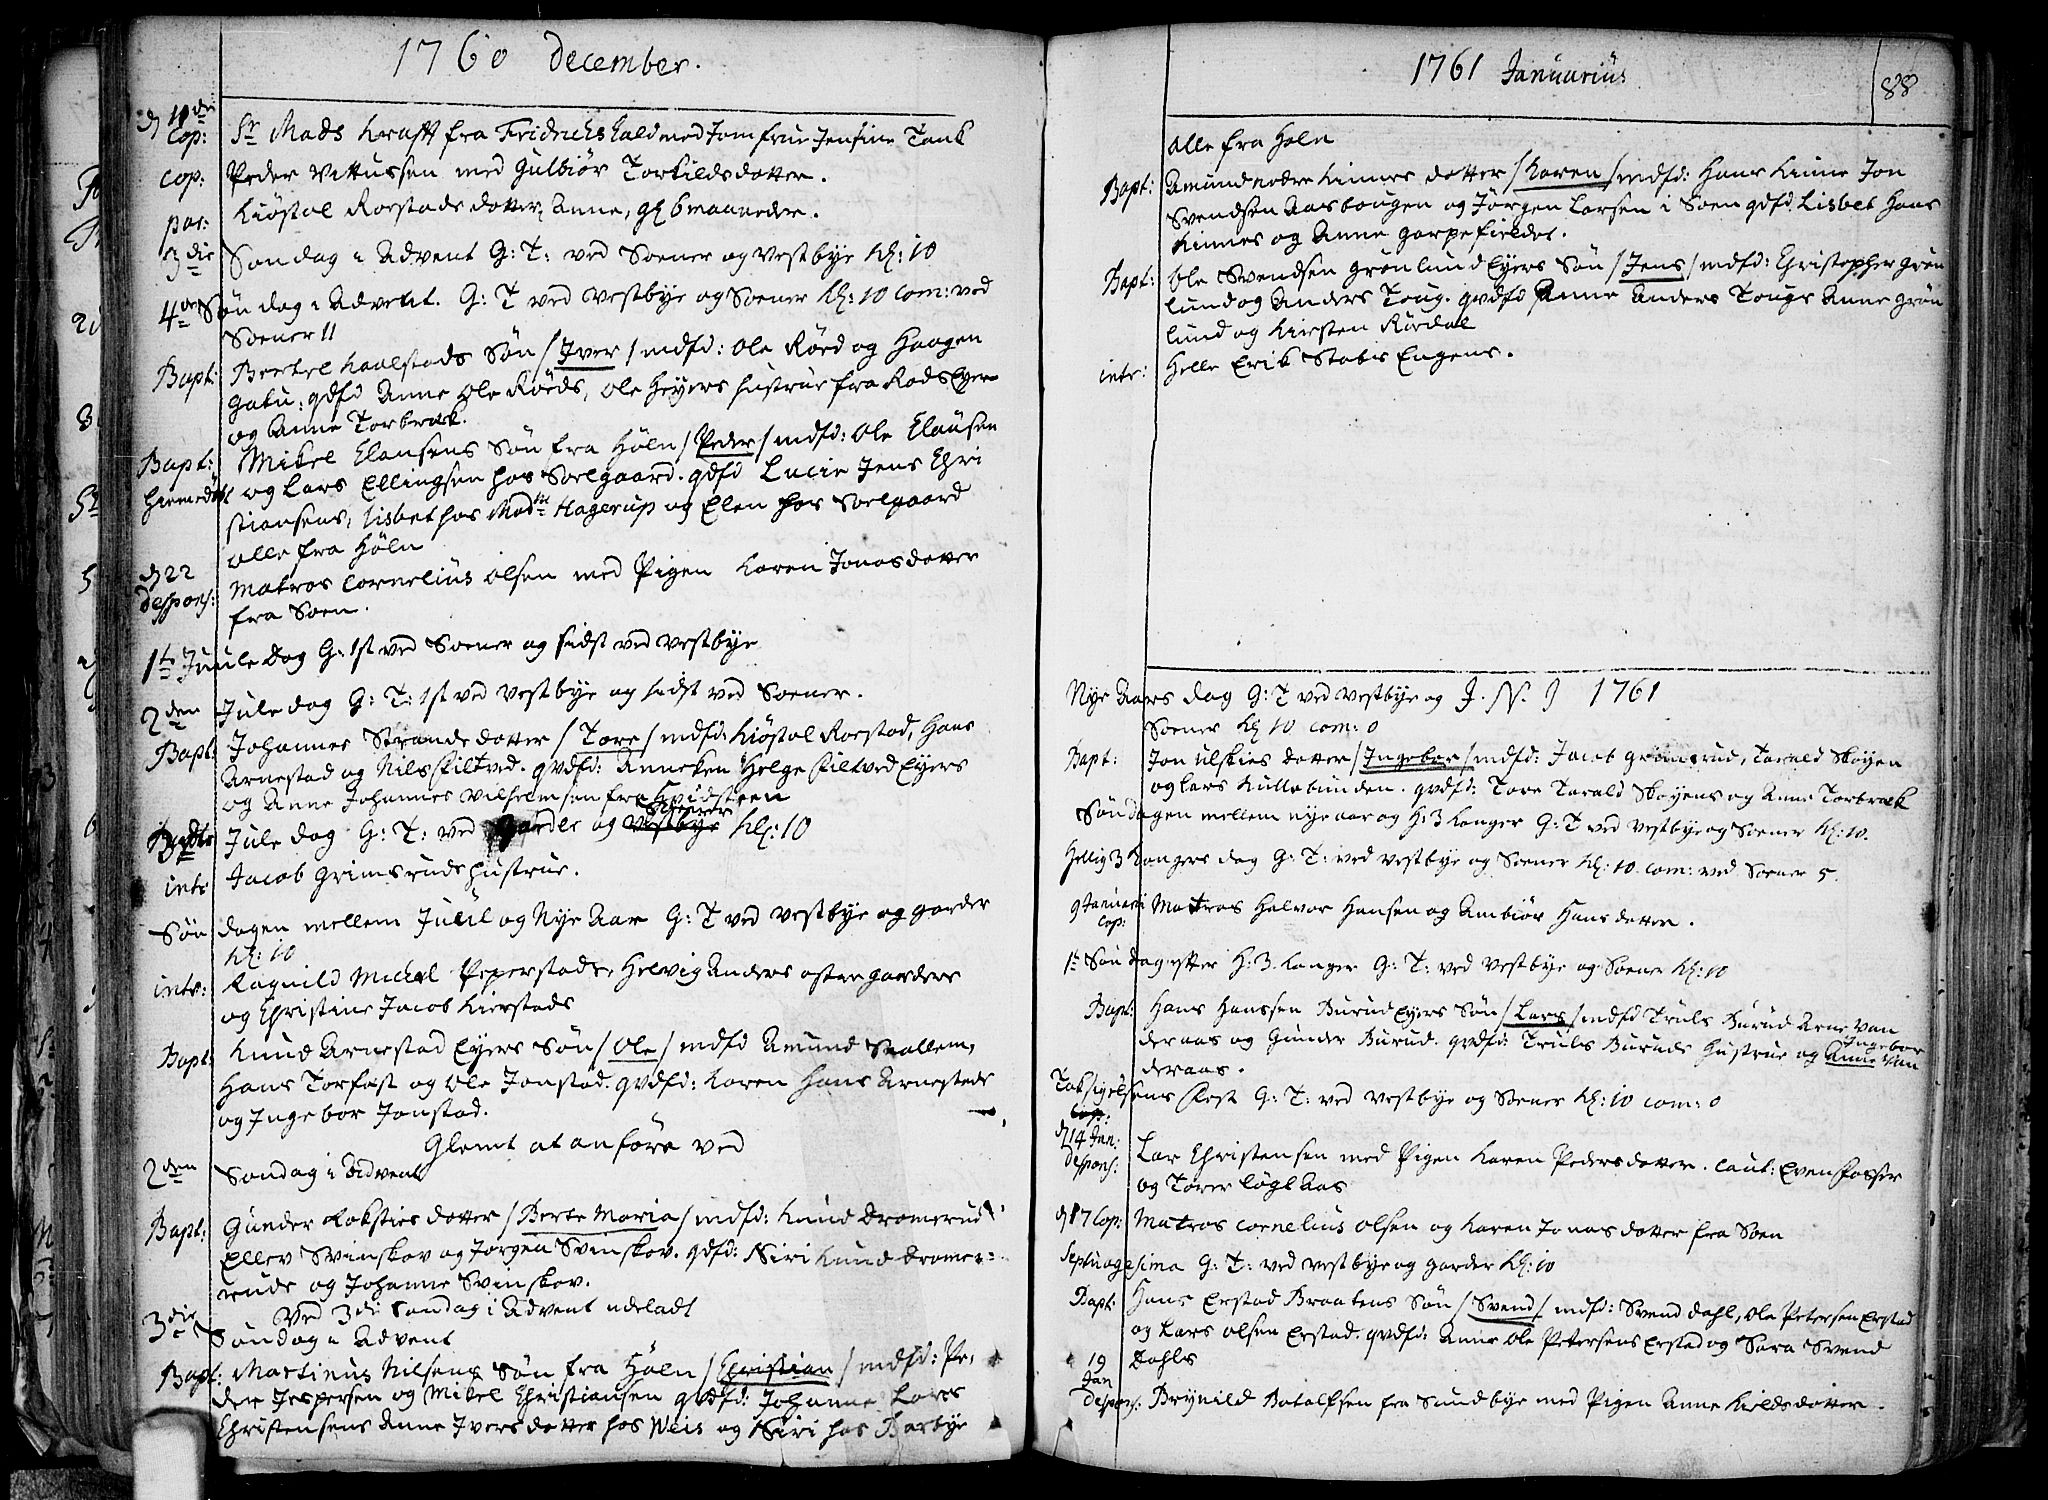 1760 December.
d 11 die
Cop: Sr Mads Krafft fra Fridrichs hald med Jomfrue Jensine Tank
Cop: Peder Vittussen med Gulbiør Torkildsdotter.
par: Kiøstol Rorstads dotter, Anne, gl 6 maaneder.
3 die Søndag i Advent G: T: ved Soener og Vestbye Kl: 10
4de Søndag i Advent. G: T ved Vestbye og Soener Kl: 10 Com: ved
Soener 11
Bapt: Bertel Kaalstads Søn / Iver / mdfd: Ole Røed og Haagen
Gatu: qdfd Anne Ole Røeds, Ole Heyers hustrue fra Røds Eyer
og Anne Torbræk.
Bapt: Mikel Clausens Søn fra Høln / Peder / mdfd: Ole Clausen
hiemedøbt og Lars Ellingsen hos Soelgaard. qdfd Lucie Jens Chri
stiansens, Lisbet hos Mad: Hagerup og Elen hos Soelgaard
alle fra Høln
d 22
despons: Matros Cornelius Olsen med Pigen Karen Jonasdotter
fra Soen.
1te Juule Dag G: 1st ved Soener og sidst ved Vestbye
2den Jule dag G: T: 1st ved Vestbye og sidst ved Soener.
Bapt: Johannes Strands dotter / Tore / mdfd: Kiøstol Rorstad, Hans
Arnestad og Nils Kiltved. qvdfd: Anneken Helge Kiltved Eyers
og Anne Johannes Vilhelmsen fra Hvidsteen
3die Jule dag G: T: ved Garder og Vestbye Soener Kl: 10
intr: Jacob Grimsruds hustrue.
Søndagen mellem Juul og Nye Aar G: T ved Vestbye og Garder
Kl: 10
intr: Ragnild Michel Peperstads, Helvig Anders østre Garders
og Christine Jacob Kierstads
Bapt: Knud Arnestad Eyers Søn / Ole / mdfd Amund Sollem,
Hans Torfast og Ole Jonstad. qvdfd: Karen Hans Arnestads
og Ingebor Jonstad.
Glemt at anføre ved
2den Søndag i Advent
Bapt: Gunder Roksties dotter / Berte Maria / mdfd: Knud Dromerud
Ellev Svinskov og Jørgen Svinskov. qdfd: Siri Knud Dromer-
ruds og Johanne Svinskov.
Ved 3di Søndag i Advent udeladt
3die Søndag i Advent
Bapt: Martinus Nilsens Søn fra Høln / Christian / mdfd: Pe-
der Jespersen og Mikel Christiansen qvdfd: Johanne Lars
Christensens Anne Iversdotter hos Weis og Siri hos Barbye
1761 Januarius
88
alle fra Høln
Bapt: Amund nedre Kinnes dotter / Karen / mdfd: Hans Kinne Jon
Svendsen Aasbougen og Jørgen Larsen i Soen qdfd Lisbet Hans
Kinnes og Anne Garpefieldet.
Bapt: Ole Svendsen Grønlund Eyers Søn / Jens / mdfd: Christopher Grøn
lund og Anders Toug. qvdfd Anne Anders Tougs Anne Grøn
lund og Kirsten Rørdal
intr: Helle Erik Stabis Engens.
Nye Aars dag G: T ved Vestbye og J. N. J 1761
Soener Kl 10 Com: 0
Bapt: Jon Ulsties dotter / Ingebor / mdfd: Jacob Grimsrud, Torald Skøyen
og Lars Kullebunden. qvdfd: Tore Torald Skøyens og Anne Torbræk
Søndagen mellem nye aar og H: 3 Konger G: T ved Vestbye og Soener Kl: 10.
Hellig 3 Kongers dag G: T: ved Vestbye og Soener Kl: 10. Com: ved Soener 5.
9 Januari
Cop: Matros Halvor Hansen og Ambiør Hansdotter.
1te Søndag efter H: 3. Konger G: T: ved Vestbye og Soener Kl: 10
Bapt: Hans Hanssen Burud Eyers Søn / Lars / mdfd Truls Burud Arne Van
deraas og Gunder Burud. qvdfd: Truls Buruds hustrue og Anne Ingebor Van
deraas.
Taksigelsens Fest G: T: ved Vestbye og Soener Kl: 10 Com: 0
Cop:
d 14 Jan:
despons: Lar Christensen med Pigen Karen Pedersdotter. Caut: Even Fosser
og Torer Løgl Aas
d 17 Cop: Matros Cornelius Olsen og Karen Jonasdotter fra Soen
Septuagesima G: T: ved Vestbye og Garder Kl: 10
Bapt: Hans Erstad Braatens Søn / Svend / mdfd: Svend Dahl, Ole Petersen Erstad
og Lars Olsen Erstad. qvdfd: Anne Ole Petersens Erstad og Sara Svend
Dahls
19
Jan
despons: Brynild Botolfsen fra Sundbye med Pigen Anne Kieldsdotter.